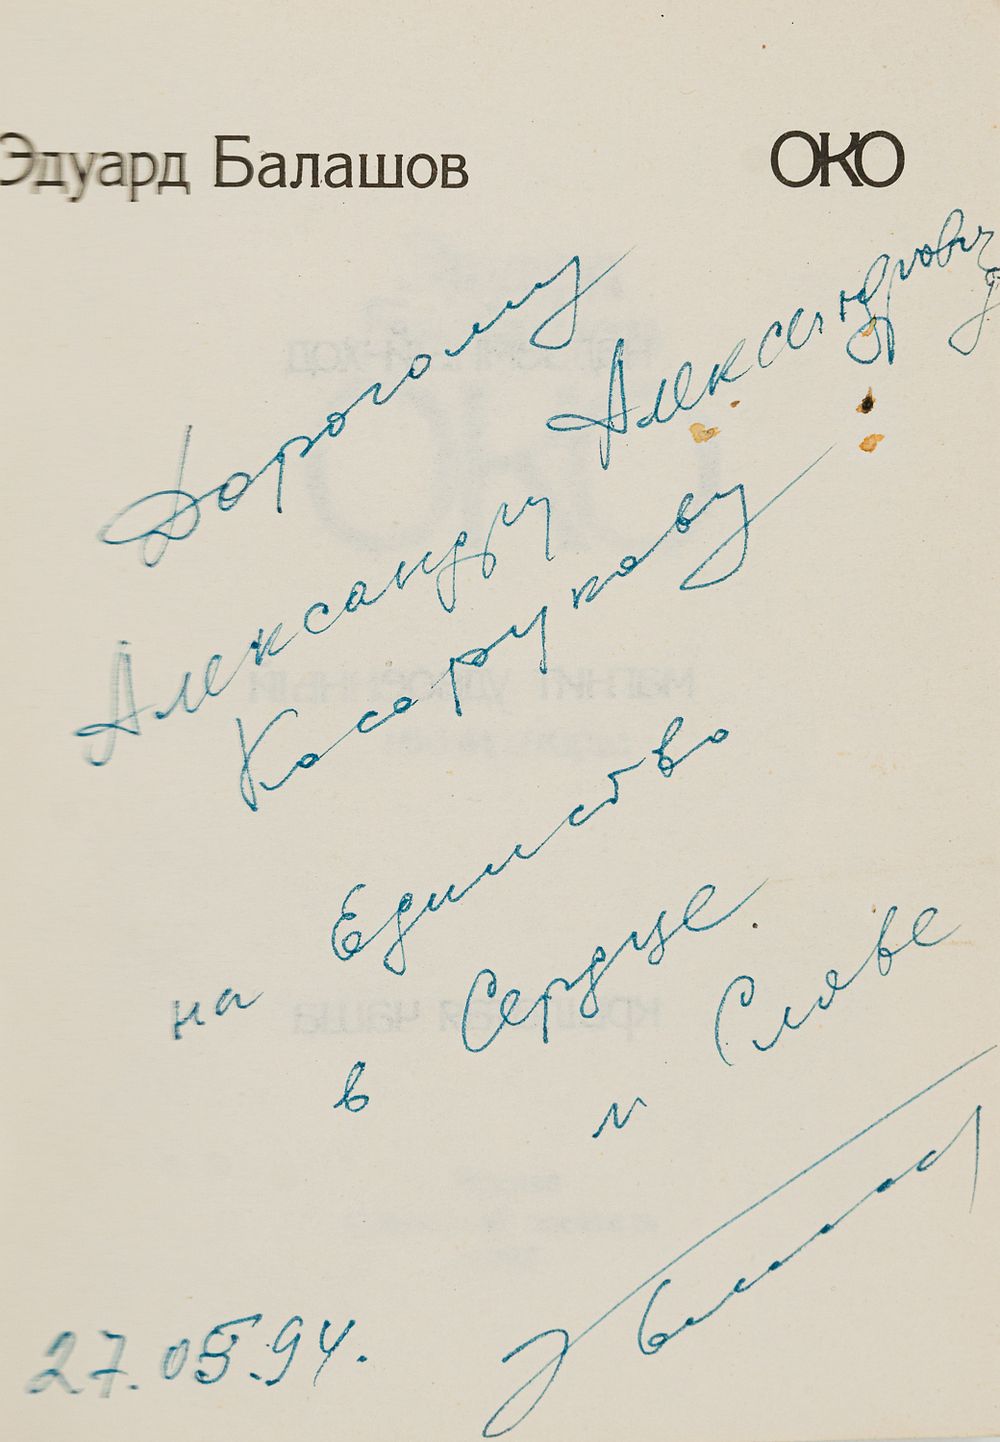 Эдуард Балашов
ОКО
Дорогому
Александру Александровичу
Косорукову
на Единство
в Сердце
и Слове
27.05.94.